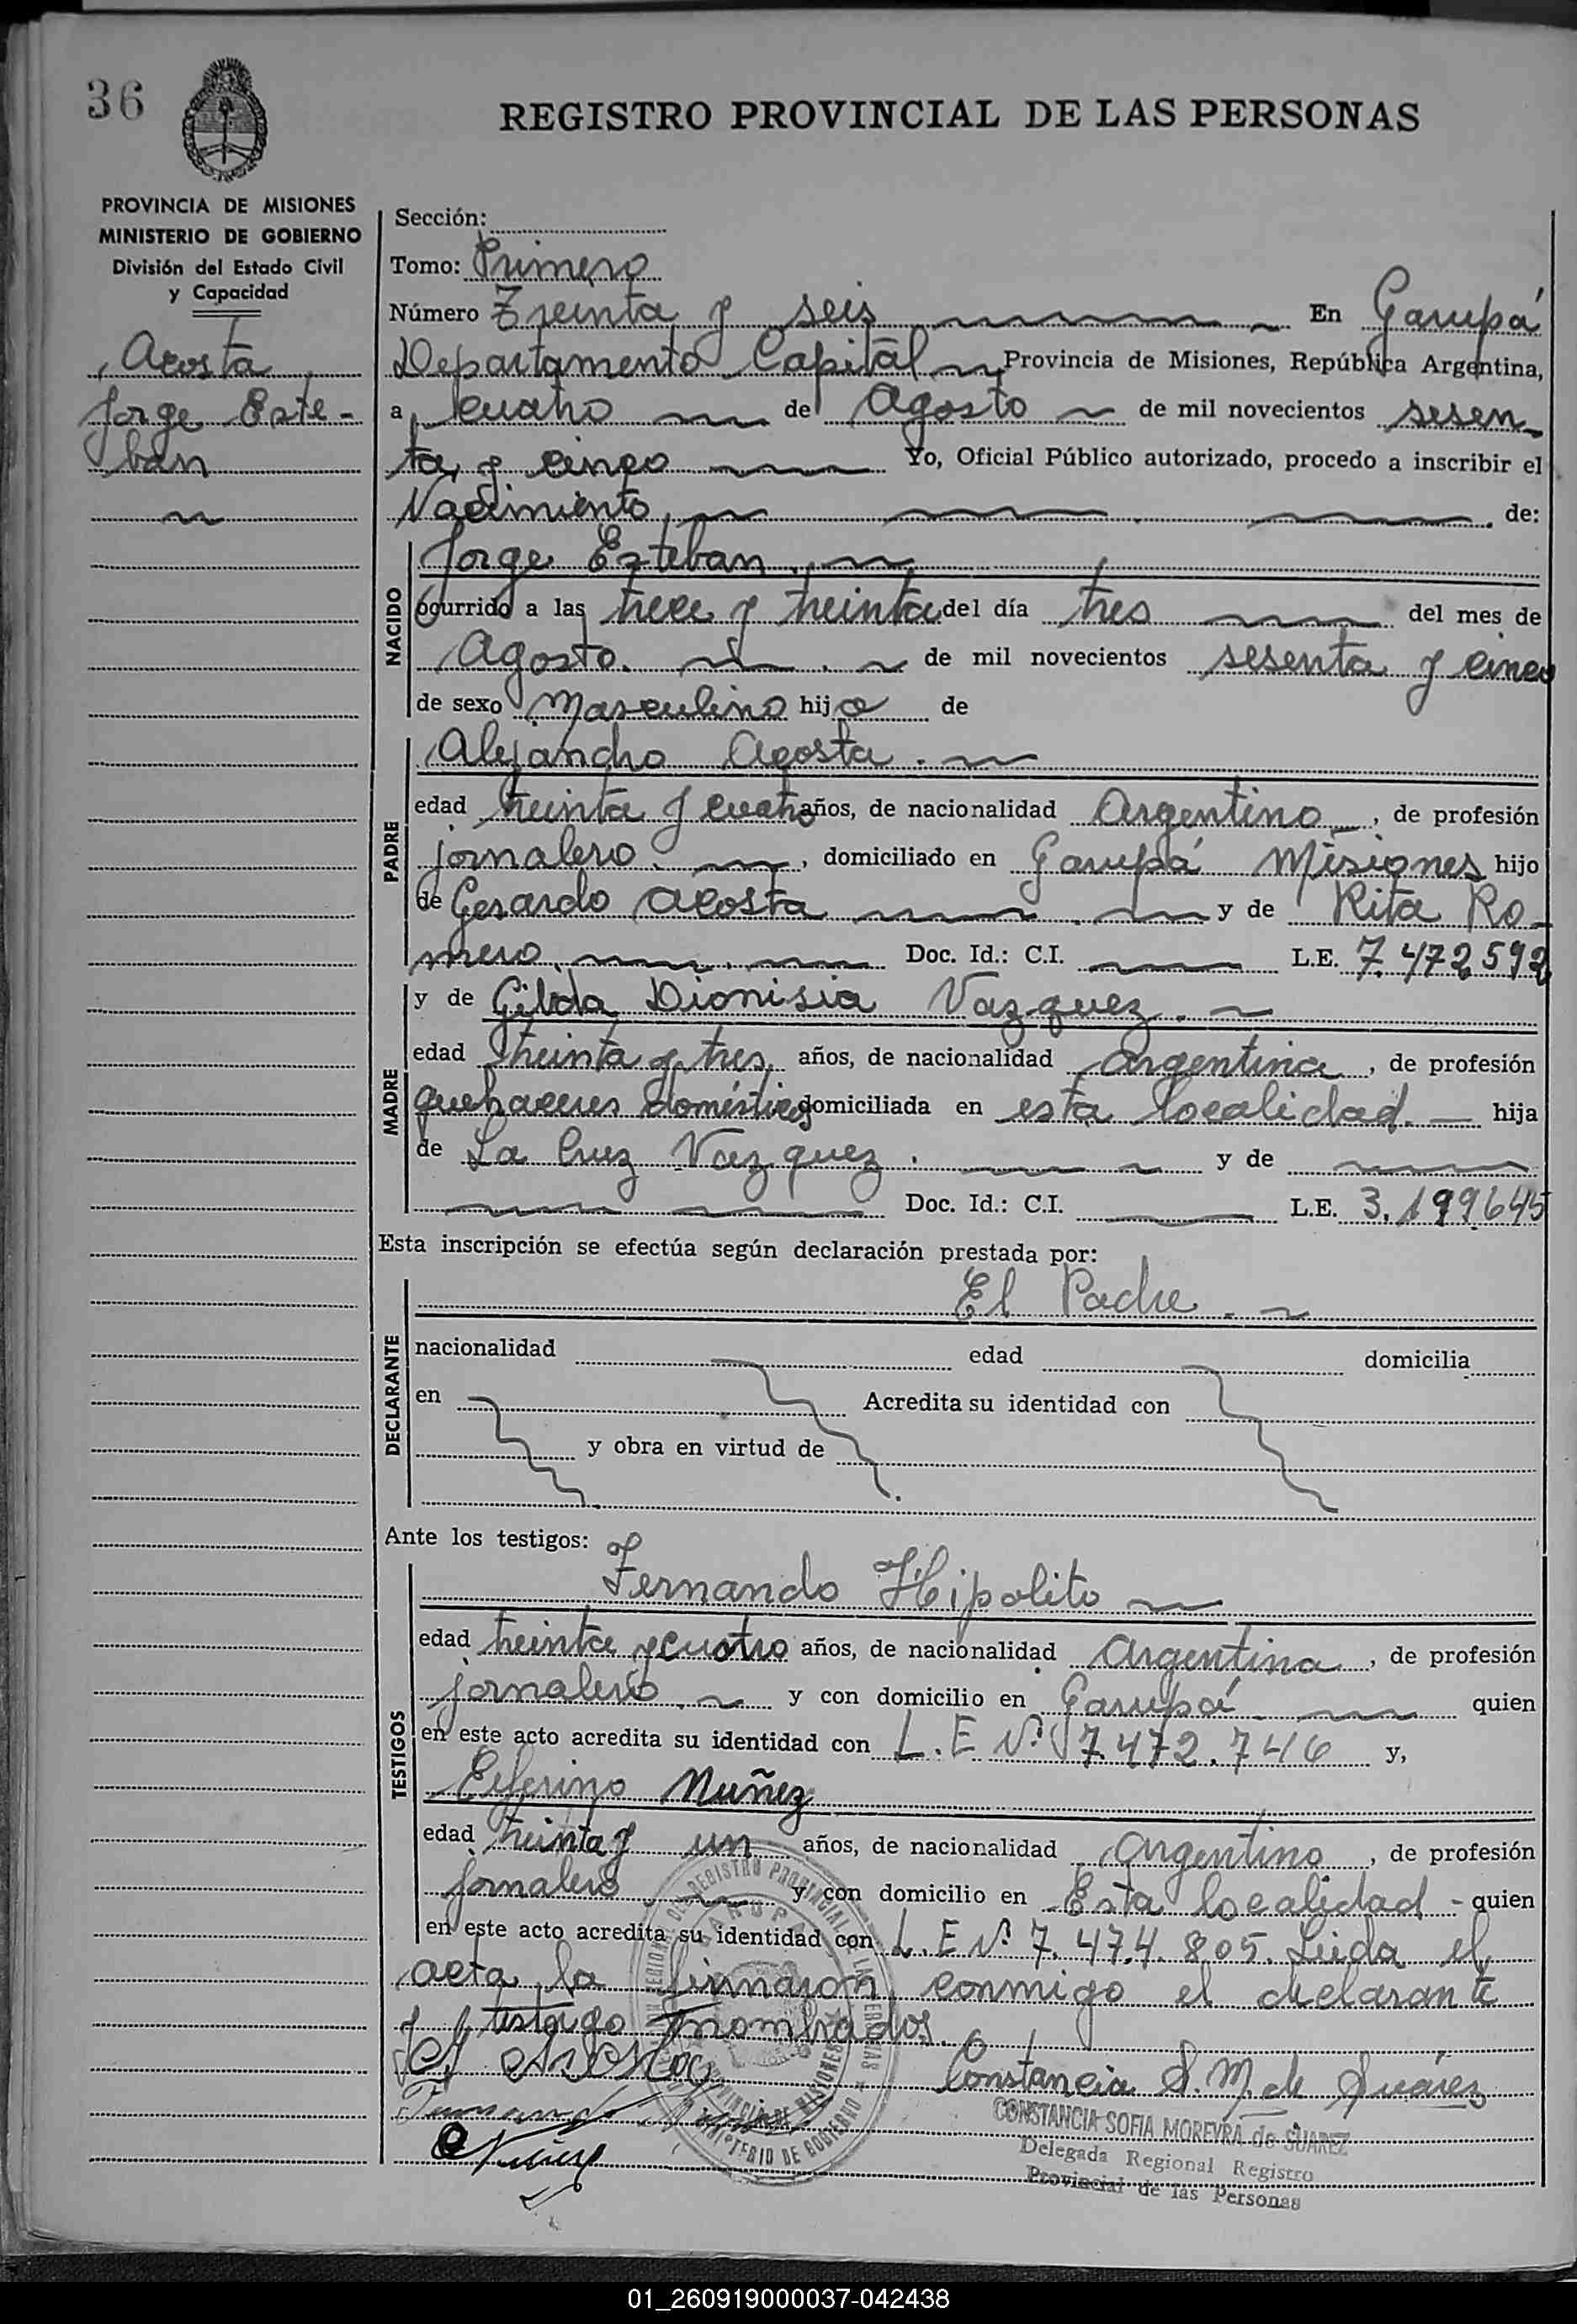 36
REGISTRO PROVINCIAL DE LAS PERSONAS
PROVINCIA DE MISIONES
MINISTERIO DE GOBIERNO
División del Estado Civil
y Capacidad
Acosta
Jorge Este-
ban
Sección:
Tomo: Primero
Número Treinta y seis En Garupá
Departamento Capital Provincia de Misiones, República Argentina,
a cuatro de Agosto de mil novecientos sesen-
ta y cinco Yo, Oficial Público autorizado, procedo a inscribir el
Nacimiento de:
NACIDO
Jorge Esteban
ocurrido a las trece y treinta del día tres del mes de
Agosto. de mil novecientos sesenta y cinco
de sexo Masculino hijo de
PADRE
Alejandro Acosta.
edad treinta y cuatro años, de nacionalidad Argentino, de profesión
jornalero, domiciliado en Garupá Misiones hijo
de Gerardo Acosta y de Rita Ro-
mero. Doc. Id.: C.I. L.E. 7.472592
MADRE
y de Gilda Dionisia Vazquez.
edad treinta y tres años, de nacionalidad argentina, de profesión
quehaceres domésticos domiciliada en esta localidad. hija
de La Cruz Vazquez. y de
Doc. Id.: C.I. L.E. 3.199645
Esta inscripción se efectúa según declaración prestada por:
DECLARANTE
El Padre.
nacionalidad edad domicilia
en Acredita su identidad con
y obra en virtud de
Ante los testigos:
TESTIGOS
Fernando Hipolito
edad treinta y cuatro años, de nacionalidad Argentina, de profesión
jornalero y con domicilio en Garupá quien
en este acto acredita su identidad con L.E Nº 7.472.746 y,
Ceferino Nuñez
edad treinta y un años, de nacionalidad Argentino, de profesión
jornalero y con domicilio en Esta localidad - quien
en este acto acredita su identidad con L.E Nº 7.474.805. Leida el
acta la firmaron conmigo el declarante
y testigo nombrados.
Acosta
Constancia S. M. de Suárez
Fernando
CONSTANCIA SOFIA MOREYRA de SUAREZ
Delegada Regional Registro
Provincial de las Personas
Nuñez
01_260919000037-042438